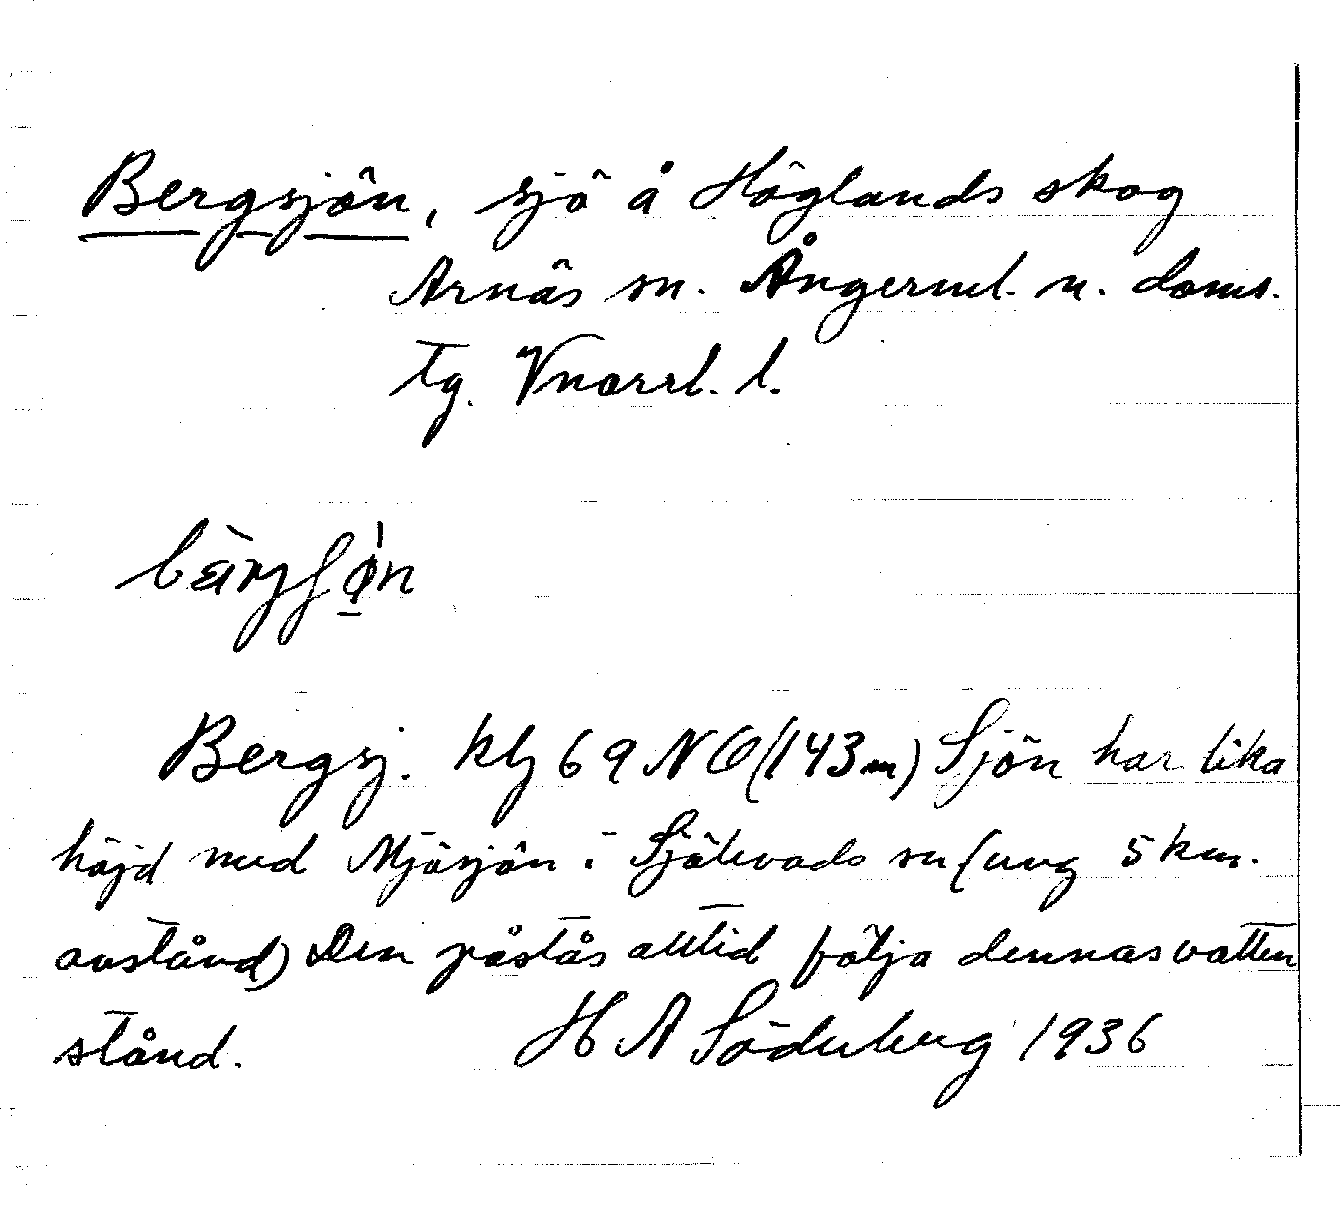 Bergsjön, sjö å Höglands skog
Arnäs sn. Ångerml. n. doms.
tg. Vnorrl. l.
bärjʃøn
Bergsj. kbl 69 NO (143 m) Sjön har lika
höjd med Mjösjön i Själevads sn (ung 5 km.
avstånd) Den påstås alltid följa dennas vatten
stånd. H A Söderberg 1936